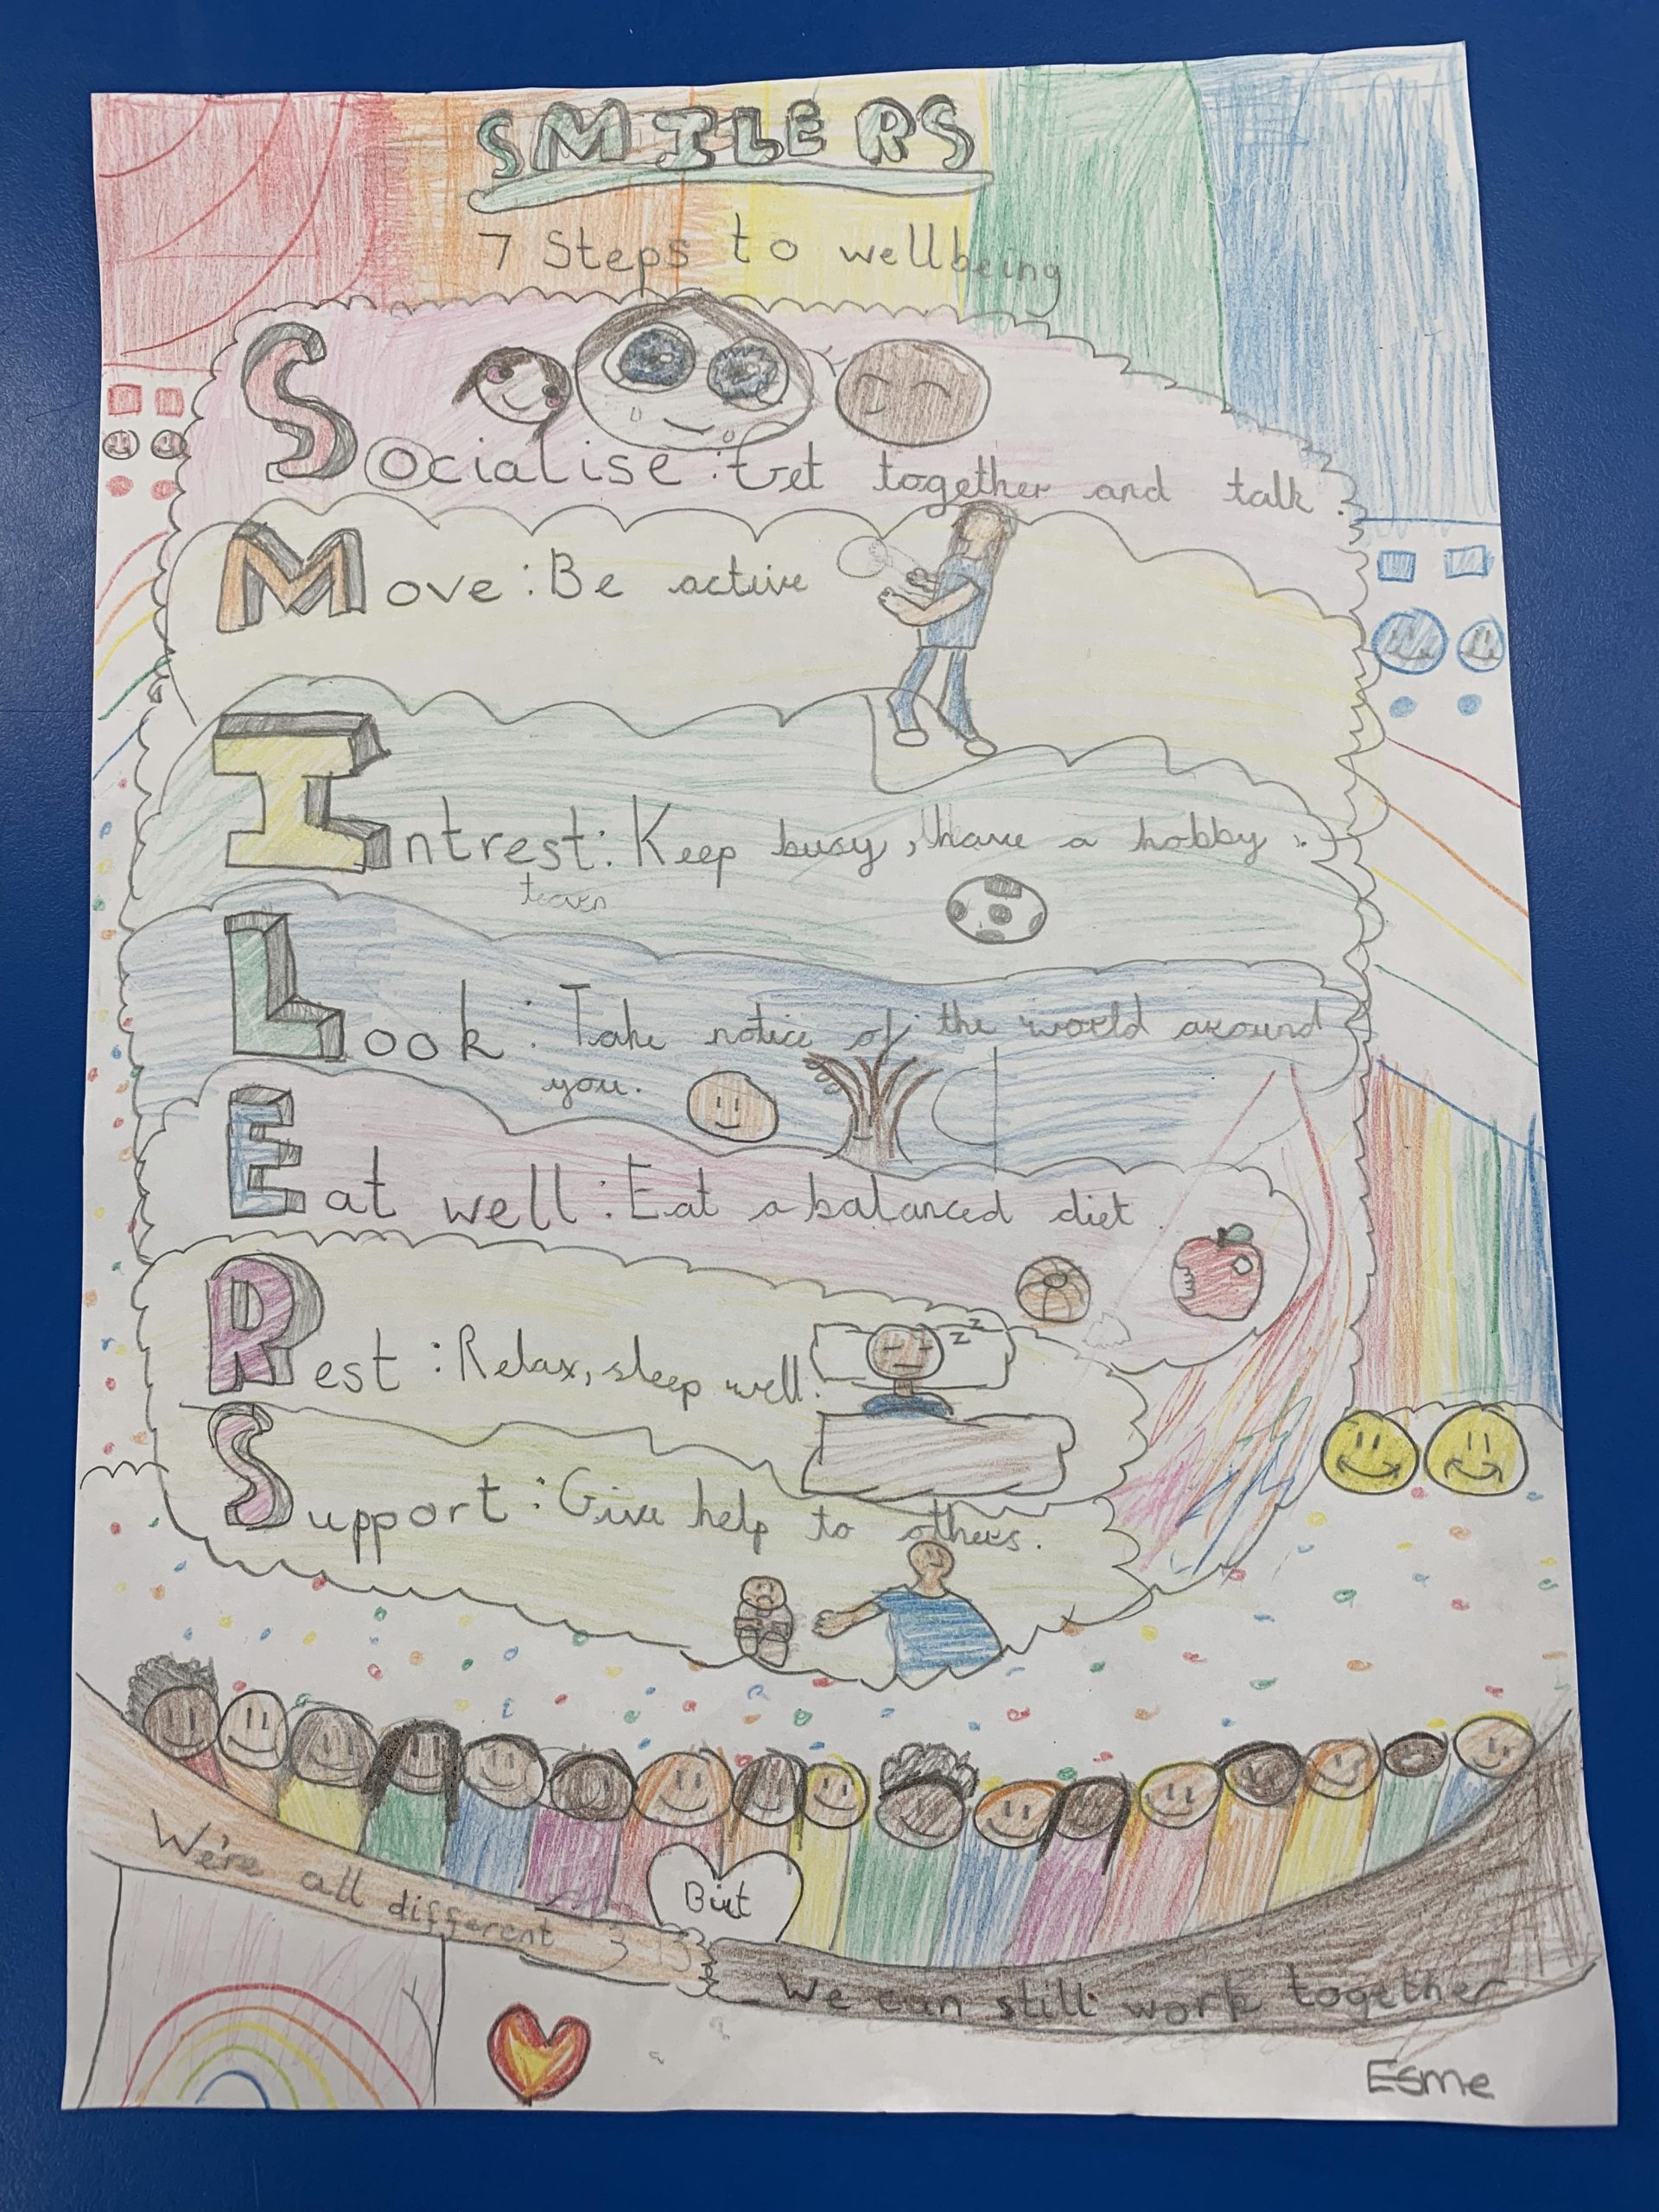 SMILERS
7 Steps to wellbeing
Socialise: Get together and talk.
Move: Be active
Intrest: Keep busy, have a hobby.
Look: Take notice of the world around
you.
Eat well: Eat a balanced diet.
Rest: Relax, sleep well.
zz
Support: Give help to others.
But
We're all different
We can still work together
Esme